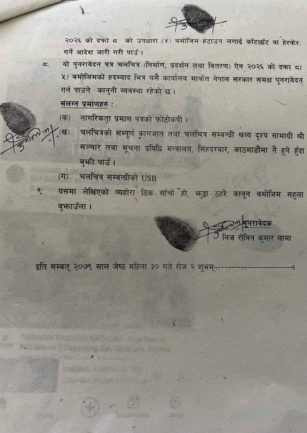 २०२६ को दफा ८ को उपधारा (४) बमोजिम हटाउन लगाई काँटछाँट वा हेरफेर
गर्ने आदेश जारी गरी पाउँ ।
८. यो पुनरावेदन पत्र चलचित्र (निर्माण, प्रदर्शन तथा वितरण) ऐन २०२६ को दफा ८(
५) बमोजिमको हदम्याद भित्र यसै कार्यालय मार्फत नेपाल सरकार समक्ष पुनरावेदन
गर्न पाउने कानूनी व्यवस्था रहेको छ ।
संलग्न प्रमाणहरु :
(क) नागरिकता प्रमाण पत्रको फोटोकपी ।
(ख) चलचित्रको सम्पूर्ण कागजात तथा चलचित्र सम्बन्धी श्रव्य दृश्य सामाग्री श्री
सञ्चार तथा सूचना प्रविधि मन्त्रालय, सिंहदरबार, काठमाडौंमा नै हुने हुँदा
बुझी पाउँ ।
(ग) चलचित्र सम्बन्धीको USB
९. यसमा लेखिएको व्यहोरा ठिक साँचो हो, झुठ्ठा ठहरे कानून बमोजिम सहुला
बुझाउँला ।
पुनरावेदक
निज रोविन कुमार लामा
इति सम्बत् २०७९ साल जेष्ठ महिना ३० गते रोज २ शुभम्